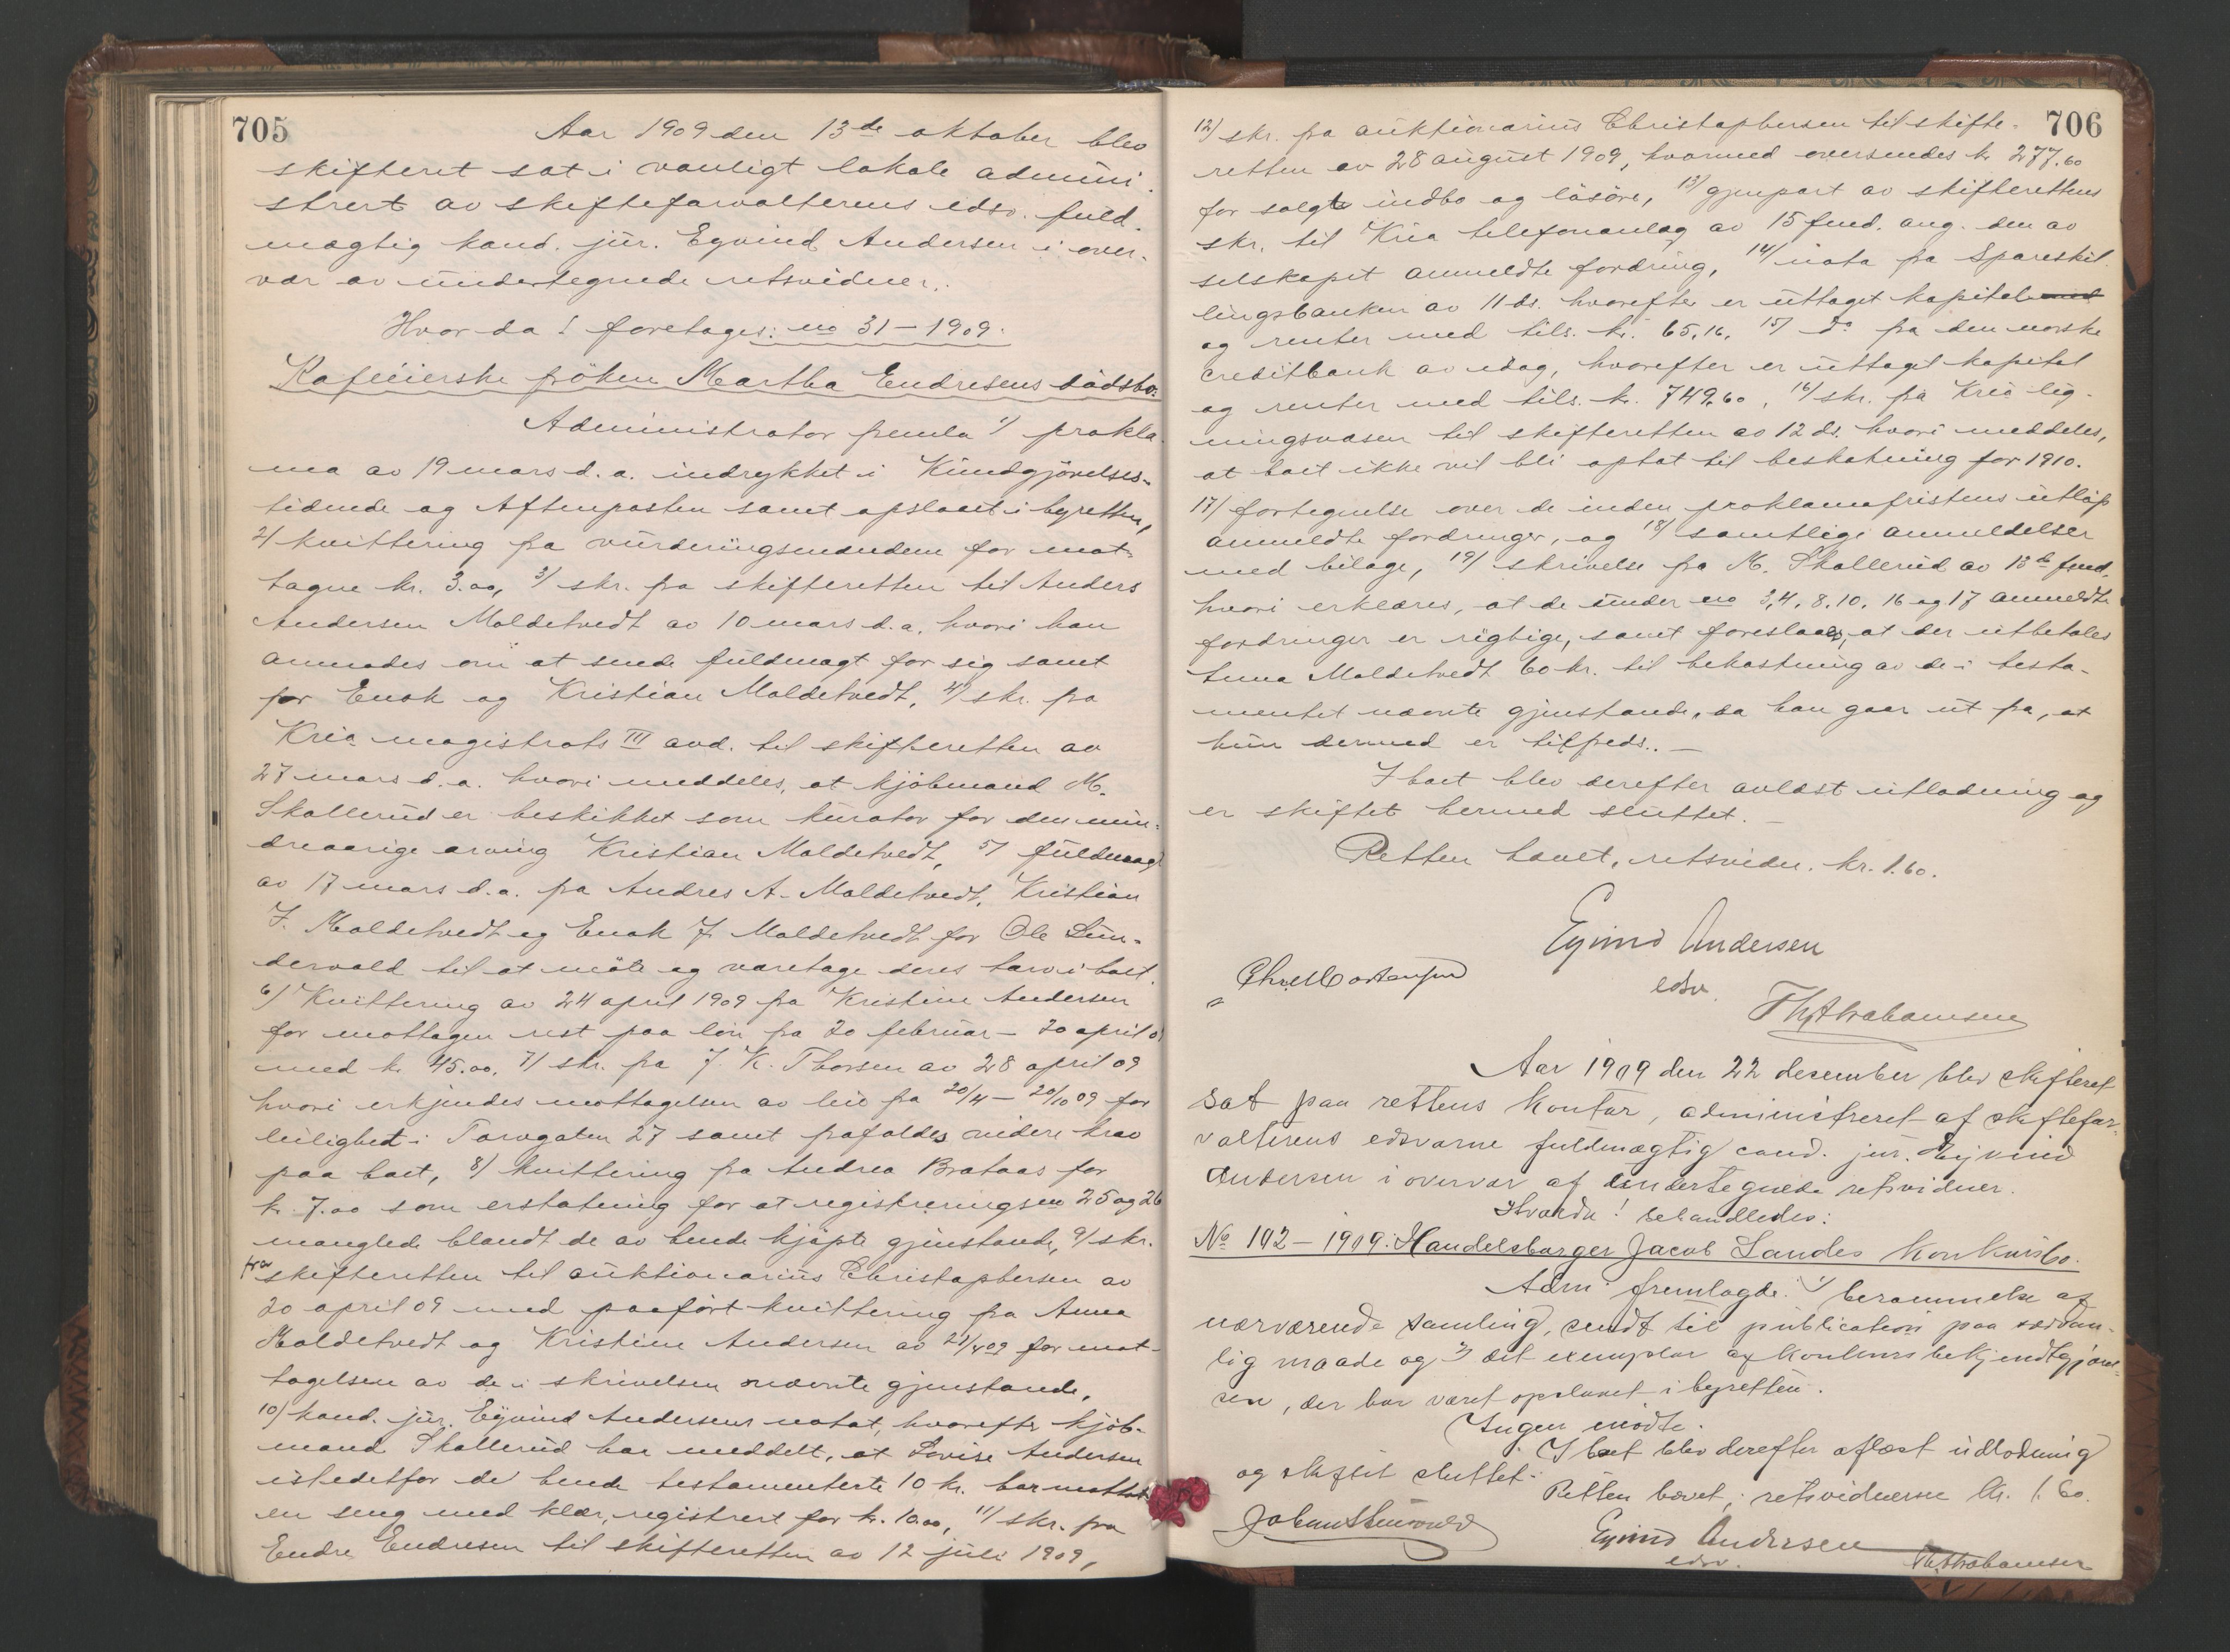 705
Aar 1909 den 13de oktober blev
skifteret sat i vanligt lokale admini-
strert av skifteforvalterens edsv. fuld-
mægtig kand. jur. Eyvind Andersen i over-
vær av undertegnede retsvidner.
Hvor da! foretoges: no 31-1909.
Kafeeierske frøken Martha Endresens dødsbo.
Administrator fremla 1/ prokla-
ma av 19 mars d.a. indrykket i Kundgjørelses-
tidende og Aftenposten samt opslaaet i byretten,
2/ kvittering fra vurderingsmændene for mot-
tagne kr. 3.00, 3/ skr. fra skifteretten til Anders
Andersen Moldetvedt av 10 mars d.a. hvori han
anmodes om at sende fuldmagt for sig samt
for Enok og Kristian Moldetvedt, 4/ skr. fra
Kria magistrats III avd. til skifteretten av
27 mars d.a. hvori meddeles, at kjøbmand M.
Skallerud er beskikket som kurator for den min-
dreaarige arving Kristian Moldetvedt, 5/ fuldmagt
av 17 mars d.a. fra Andres A. Moldetvedt, Kristian
J. Moldetvedt og Enok J. Moldetvedt for Ole Lun-
dervold til at møte og varetage deres tarv i boet.
6/ Kvittering av 24 april 1909 fra Kristine Andersen
for mottagen rest paa løn fra 20 februar - 20 april 09
med kr. 45.00, 7/ skr. fra J. K. Thorsen av 28 april 09
hvori erkjendes mottagelsen av leie fra 20/4 - 20/10 09 for
leilighet i Torvgaten 27 samt frafaldes videre krav
paa boet, 8/ kvittering fra Andrea Brataas for
kr. 7.00 som erstatning for at registreringsno 25 og 26
manglede blandt de av hende kjøpte gjenstande, 9/ skr.
fra skifteretten til auktionarius Christophersen av
20 april 09 med paaført kvittering fra Anna
Moldetvedt og Kristine Andersen av 21/4 09 for mot-
tagelsen av de i skrivelsen nævnte gjenstande,
10/ kand. jur. Eyvind Andersens notat, hvorefter kjøb-
mand Skallerud har meddelt, at Lovise Andersen
istedetfor de hende testamenterte 10 kr. har mottat
en seng med klær, registrert for kr. 10.00, 11/ skr. fra
Endre Endresen til skifteretten av 12 juli 1909,
706
12/ skr. fra auktionarius Christophersen til skifte-
retten av 28 august 1909, hvormed oversendes kr 277.60
for solgte indbo og løsøre, 13/ gjenpart av skifterettens
skr. til Kria telefonanlæg av 15 fmd. ang. den av
selskapet anmeldte fordring, 14/ nota fra Spareskil-
lingsbanken av 11 ds. hvorefter er uttaget kapital med
og renter med tils. kr. 65.16, 15/ do fra den norske
creditbank av idag, hvorefter er uttaget kapital
og renter med tils. kr. 749.60, 16/ skr. fra Kria lig-
ningsvæsen til skifteretten av 12 ds. hvori meddeles,
at boet ikke vil bli optat til beskatning for 1910.
17/ fortegnelse over de inden proklamafristens utløp
anmeldte fordringer, og 18/ samtlige anmeldelser
med bilage, 19/ skrivelse fra M. Skallerud av 13de fmd.
hvori erklæres, at de under no 3, 4, 8, 10, 16 og 17 anmeldte
fordringer er rigtige, samt foreslaaes, at der utbetales
Anna Moldetvedt 60 kr. til bekostning av de i testa-
mentet nævnte gjenstande, da han gaar ut fra, at
hun dermed er tilfreds. -
I boet blev derefter avlæst utlodning og
er skiftet hermed sluttet. -
Retten hævet, retsvidn. kr. 1.60.
Eyvind Andersen
edsv.
Chr. Mortensen
Th. Abrahamsen
Aar 1909 den 22 desember blev skifteret
sat paa rettens kontor, administreret af skiftefor-
valterens edsvorne fuldmægtig cand. jur. Eyvind
Andersen i overvær af undertegnede retsvidner.
Hvorda! behandledes:
No 102-1909: Handelsborger Jacob Landes konkursbo.
Adm. fremlagde: 1/ berammelse af
nærværende samling, sendt til publication paa sædvan-
lig maade og 2/ det exemplar af konkursbekjendtgjørel-
sen, der har været opslaaet i byretten.
Ingen mødte.
I boet blev derefter aflæst udlodning
og skiftet sluttet.
Retten hævet; retsvidnerne kr. 1.60.
Eyvind Andersen
edsv.
Th. Abrahamsen